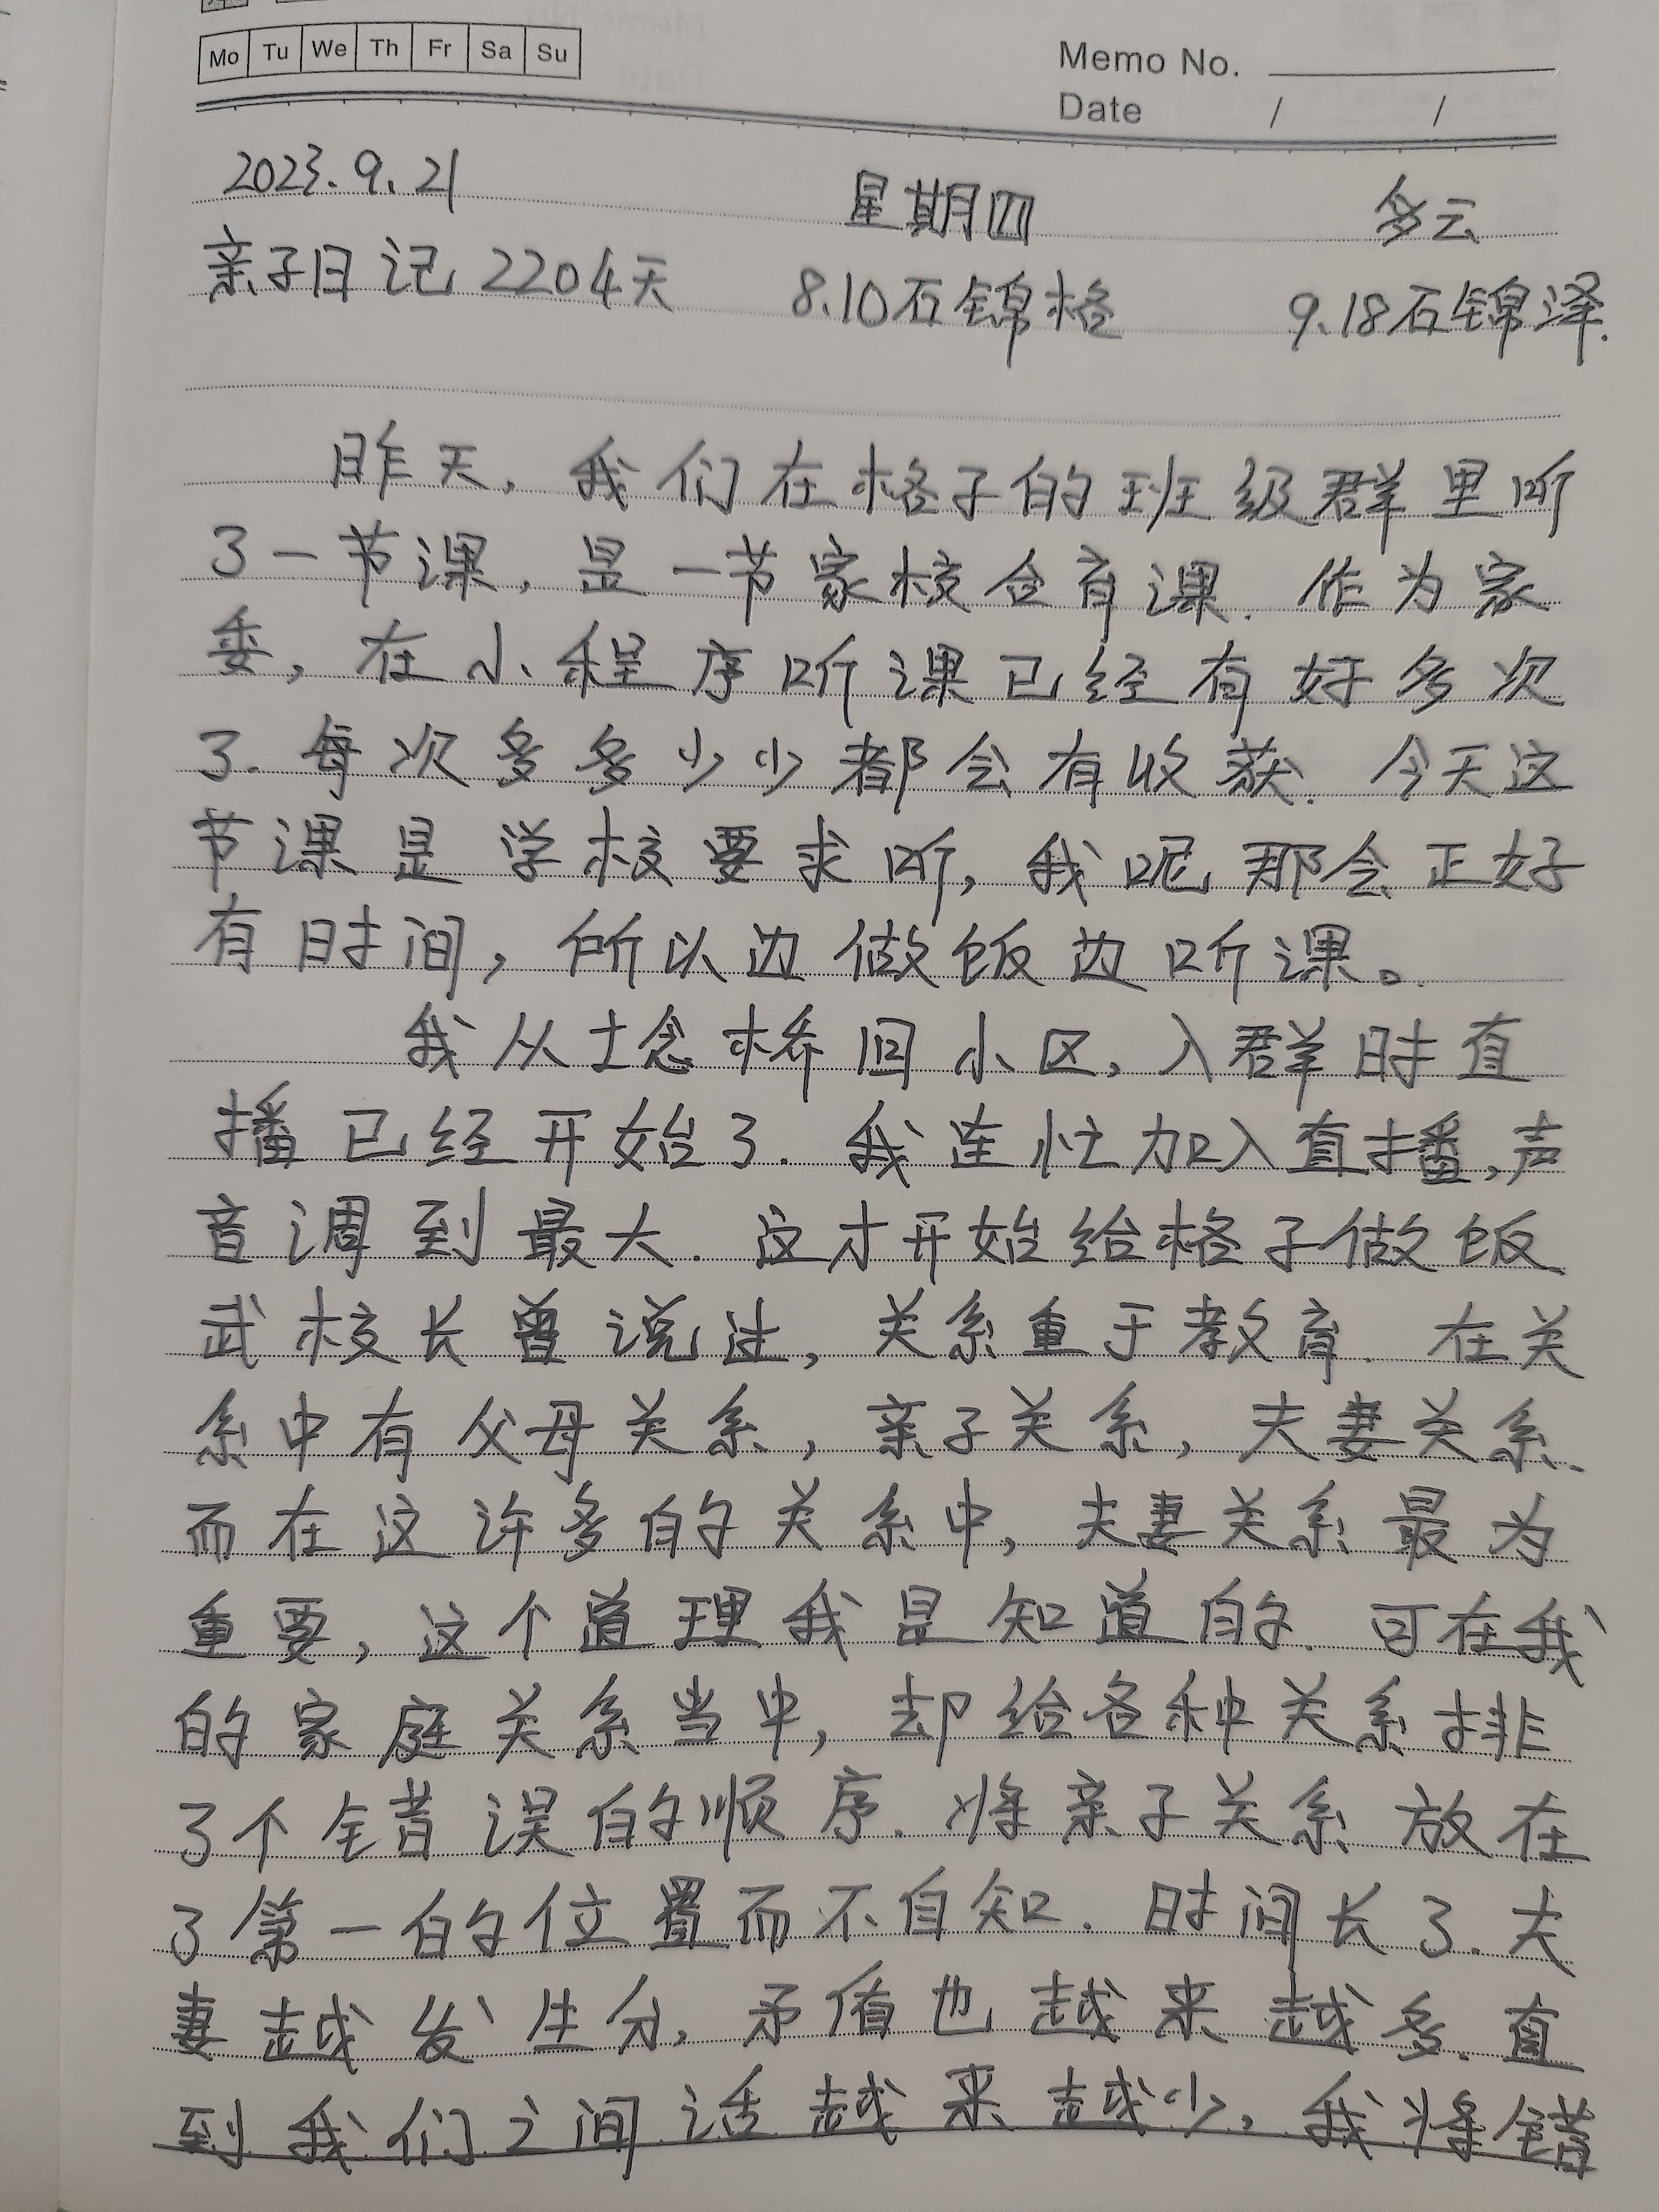 Mo Tu We Th Fr Sa Su
Memo No.
Date / /
2023.9.21 星期四 多云
亲子日记2204天 8.10石锦格 9.18石锦泽.
昨天,我们在格子的班级群里听
了一节课,是一节家校合育课.作为家
委,在小程序听课已经有好多次
了.每次多多少少都会有收获.今天这
节课是学校要求听,我呢那会正好
有时间,所以边做饭边听课。
我从士念桥回小区,入群时直
播已经开始了.我连忙加入直播,声
音调到最大.这才开始给格子做饭
武校长曾说过,关系重于教育.在关
系中有父母关系,亲子关系,夫妻关系.
而在这许多的关系中,夫妻关系最为
重要,这个道理我是知道的.可在我
的家庭关系当中,却给各种关系排
了个错误的顺序.将亲子关系放在
了第一的位置而不自知.时间长了.夫
妻越发生分,矛盾也越来越多.直
到我们之间话越来越少,我将错